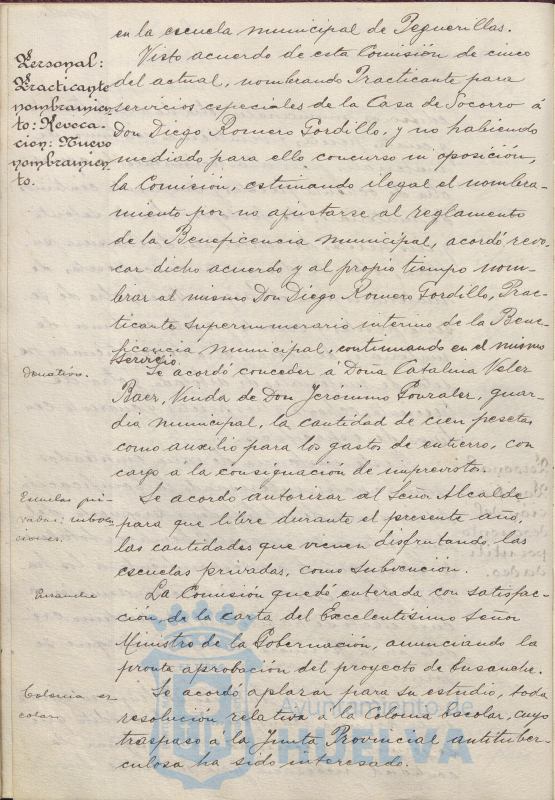 en la escuela municipal de Peguerillas.
Personal:
Practicante
nombramien
to: Revoca-
cion: Nuevo
nombramien
to.
Visto acuerdo de esta Comisión de cinco
del actual, nombrando Practicante para
servicios especiales de la Casa de Socorro á
Don Diego Romero Gordillo, y no habiendo
mediado para ello concurso ni oposición,
la Comisión, estimando ilegal el nombra-
miento por no ajustarse al reglamento
de la Beneficencia municipal, acordó revo-
car dicho acuerdo y al propio tiempo nom-
brar al mismo Don Diego Romero Gordillo, Prac-
ticante supernumerario interino de la Bene-
ficencia municipal, continuando en el mismo
servicio.
Donativo.
Se acordó conceder á Doña Catalina Velez
Baez, Viuda de Don Jerónimo Gonzalez, guar-
dia municipal, la cantidad de cien pesetas
como auxilio para los gastos de entierro, con
cargo á la consignación de imprevistos.
Escuelas pri
vadas: subven
ciones.
Se acordó autorizar al Señor Alcalde
para que libre durante el presente año,
las cantidades que vienen disfrutando las
escuelas privadas, como subvención.
Ensanche
La Comisión quedó enterada con satisfac-
ción, de la carta del Excelentísimo Señor
Ministro de la Gobernación, anunciando la
pronta aprobación del proyecto de Ensanche.
Colonia es
colar
Se acordó aplazar para su estudio, toda
resolución relativa á la Colonia Escolar, cuyo
traspaso á la Junta Provincial antituber-
culosa ha sido interesado.
Ayuntamiento de
HUELVA